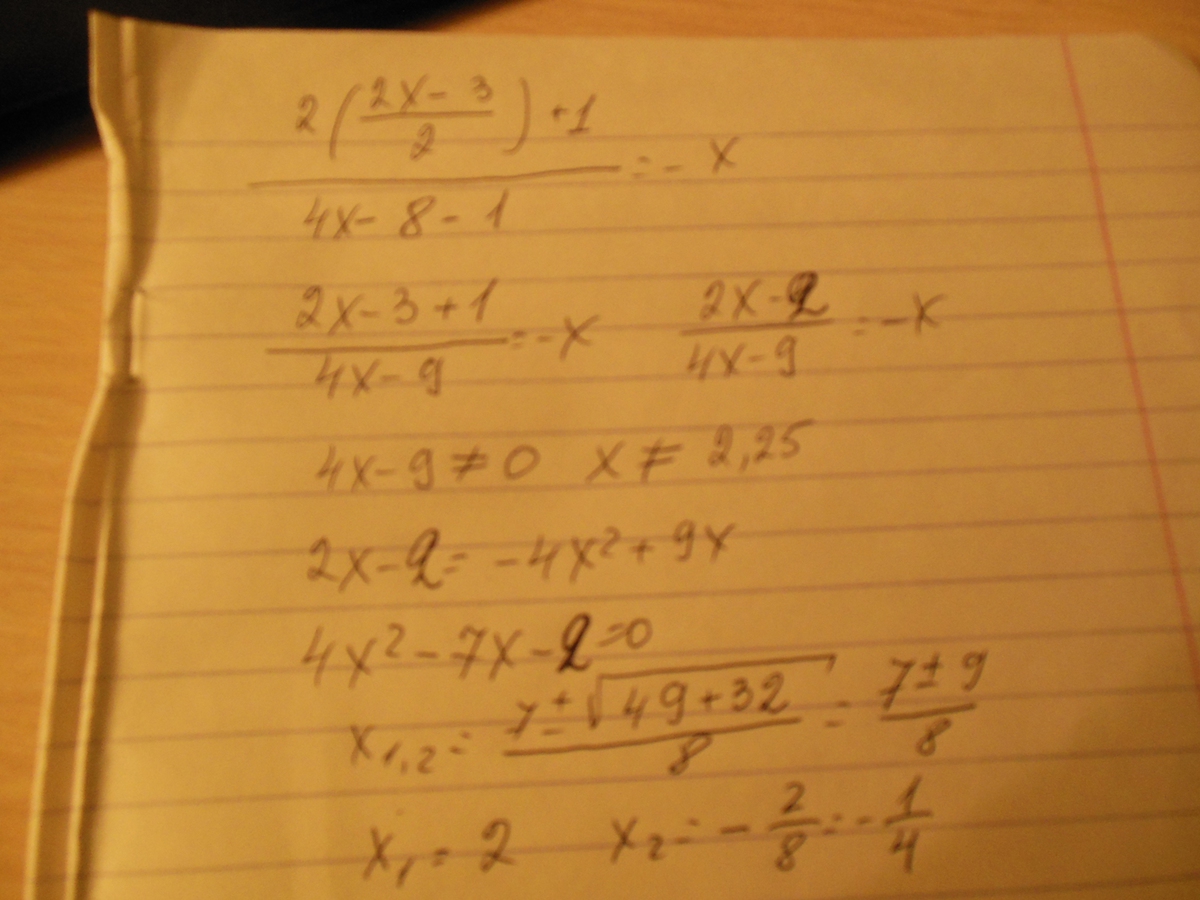 2((2x-3)/2)+1 / 4x-8-1 = -x
2x-3+1 / 4x-9 = -x    2x-2 / 4x-9 = -x
4x-9≠0 x≠2,25
2x-2=-4x²+9x
4x²-7x-2=0
x₁,₂ = 7±√49+32 / 8 = 7±9 / 8
x₁=2 x₂=-2/8=-1/4